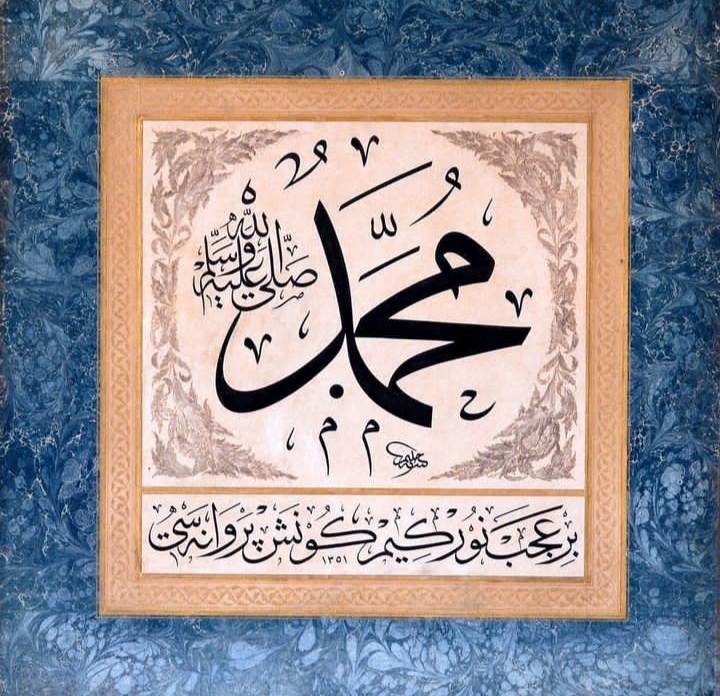 مُحَمَّدٌ
صلى الله عليه وسلم
بر عجب نور كيم كونش پروانه سی
١٣٥١